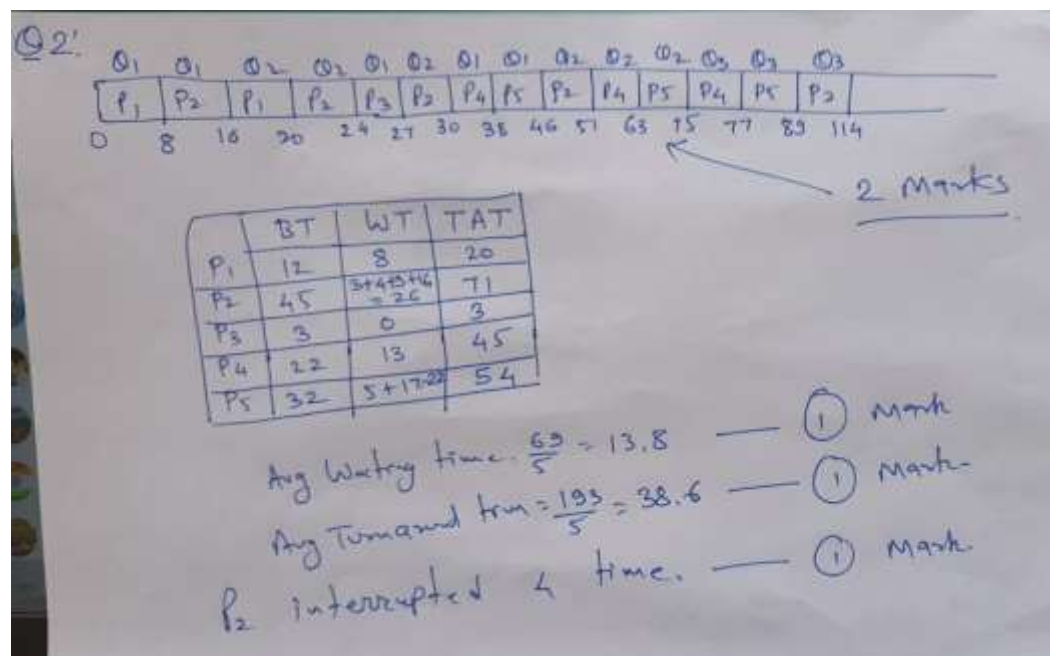 Q2'.
Q1 Q1 Q2 Q2 Q1 Q2 Q1 Q1 Q2 Q2 Q2 Q3 Q3 Q3
P1 P2 P1 P2 P3 P2 P4 P5 P2 P4 P5 P4 P5 P2
0 8 16 20 24 27 30 38 46 51 63 75 77 89 114
2 Marks
BT WT TAT
P1 12 8 20
P2 45 = 26 71
P3 3 0 3
P4 22 13 45
P5 32 5+17=22 54
Avg Waiting time = 69/5 = 13.8 — 1 Mark
Avg Turnaround time = 193/5 = 38.6 — 1 Mark
P2 interrupted 4 time. — 1 Mark.